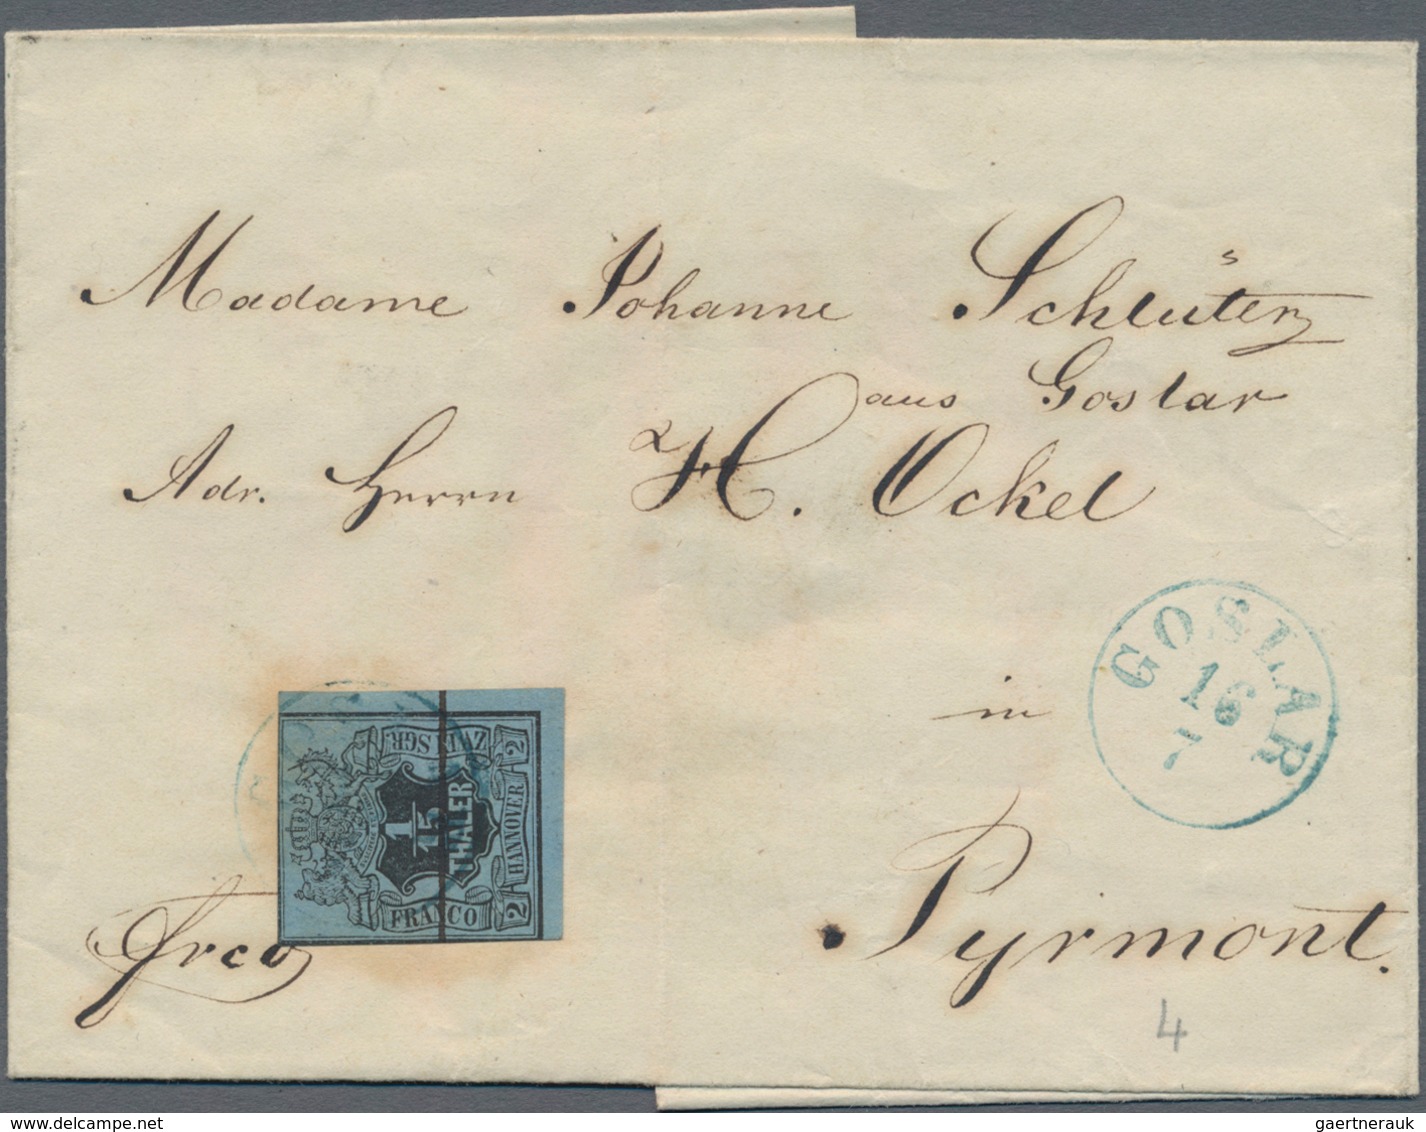 Madame Johanne Schlüter
aus Goslar
Adr. Herrn H. Ockel
GOSLAR
16
7
in
ZWEI SGR.
1
15
THALER
FRANCO
2 HANNOVER 2
Frco
Pyrmont.
4
gaertnerauk